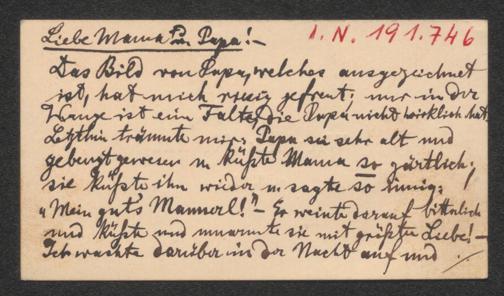 Liebe Mama und Papa! –
I. N. 191.746
Das Bild von Papa, welches ausgezeichnet
ist, hat mich riesig gefreut, nur in der
Wange ist ein Falte, die Papa nicht wirklich hat.
Letzthin träumte mir, Papa sei sehr alt und
gebeugt gewesen u küßte Mama so zärtlich;
sie küßte ihn wieder u sagte so innig:
„Mein guts Mannerl!" – Er weinte darauf bitterlich
und küßte und umarmte sie mit größter Liebe! –
Ich wachte darüber in der Nacht auf und